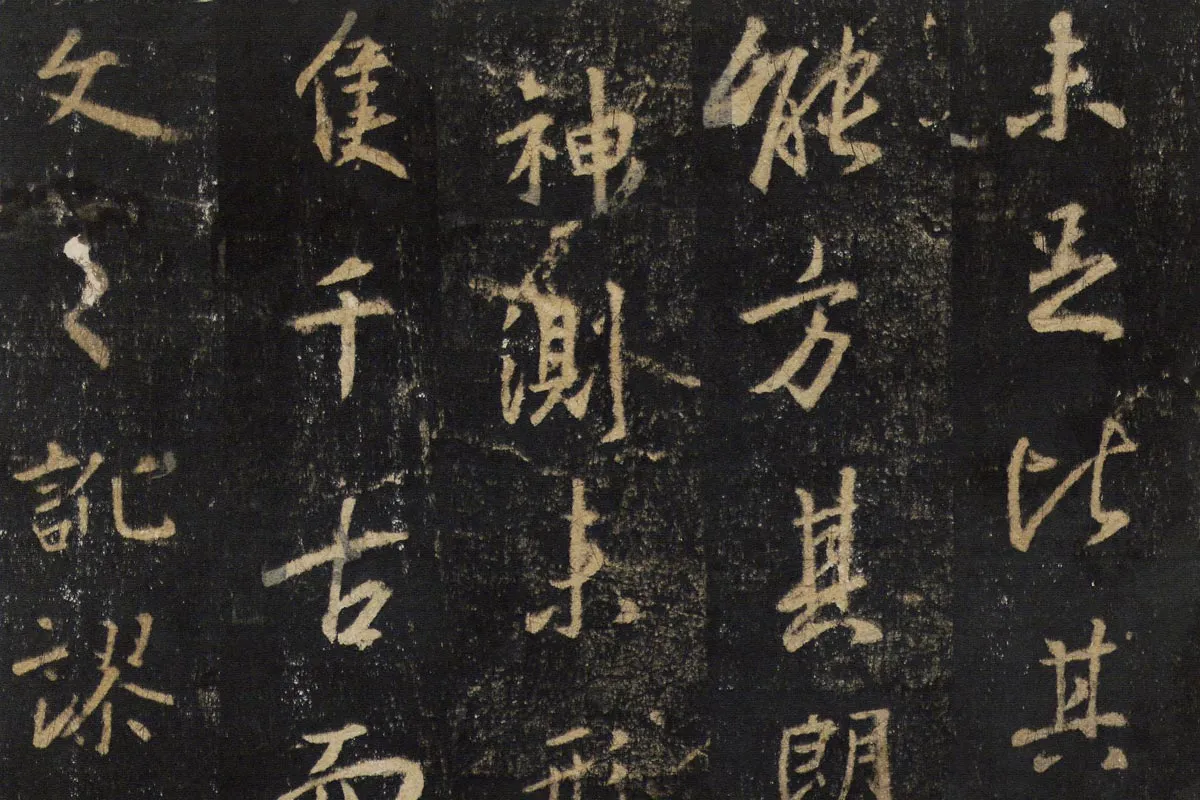 未足比其
能方其朗
神測未形
隻千古而
文之訛謬